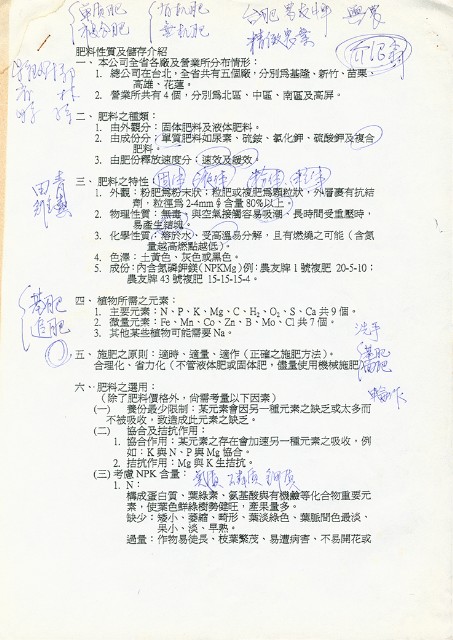 單質肥
複合肥
有機肥
無機肥
合肥
精致農業
興農
肥料性質及儲存介紹
一、本公司全省各廠及營業所分布情形：
1. 總公司在台北，全省共有五個廠，分別為基隆、新竹、苗栗、
高雄、花蓮。
2. 營業所共有４個，分別為北區、中區、南區及高屏。
二、肥料之種類：
1. 由外觀分：固体肥料及液体肥料。
2. 由成份分：單質肥料如尿素、硫銨、氯化鉀、硫酸鉀及複合
肥料。
3. 由肥份釋放速度分：速效及緩效。
三、肥料之特性：
1. 外觀：粉肥為粉末狀；粒肥或複肥為顆粒狀，外層裹有抗結
劑，粒徑為 2-4mm∮含量 80%以上。
2. 物理性質：無毒、與空氣接觸容易吸潮、長時間受重壓時，
易產生結塊。
3. 化學性質：溶於水、受高溫易分解，且有燃燒之可能（含氮
量越高燃點越低）。
4. 色澤：土黃色、灰色或黑色。
5. 成份：內含氮磷鉀鎂(NPKMg)例：農友牌 1 號複肥 20-5-10；
農友牌 43 號複肥 15-15-15-4。
基肥
追肥
四、植物所需之元素：
1. 主要元素：N、P、K、Mg、C、H₂、O₂、S、Ca 共 9 個。
2. 微量元素：Fe、Mn、Co、Zn、B、Mo、Cl 共 7 個。
3. 其他某些植物可能需要 Na。
洗手
五、施肥之原則：適時、適量、適作（正確之施肥方法）。
合理化、省力化（不管液体肥或固体肥，儘量使用機械施肥）
輪作
六、肥料之選用：
（除了肥料價格外，尚需考量以下因素）
(一) 養份最少限制：某元素會因另一種元素之缺乏或太多而
不被吸收，致造成此元素之缺乏。
(二) 協合及拮抗作用：
1. 協合作用：某元素之存在會加速另一種元素之吸收，例
如：K 與 N、P 與 Mg 協合。
2. 拮抗作用：Mg 與 K 生拮抗。
(三) 考慮 NPK 含量：
1. N：
構成蛋白質、葉綠素、氨基酸與有機鹼等化合物重要元
素，使葉色鮮綠樹勢健旺，產果量多。
缺少：矮小、萎縮、畸形、葉淡綠色、葉脈間色最淡、
果小、淡、早熟。
過量：作物易徒長、枝葉繁茂、易遭病害、不易開花或